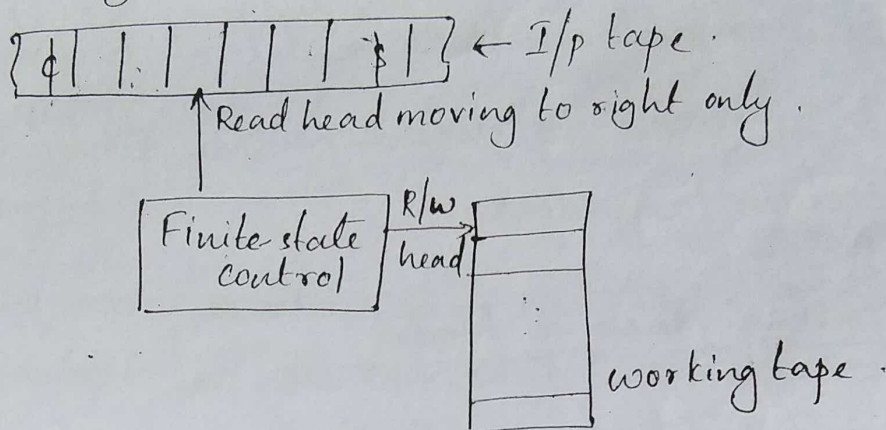 ¢ $ ← I/p tape.
Read head moving to right only.
R/W
Finite state
head
control
working tape.